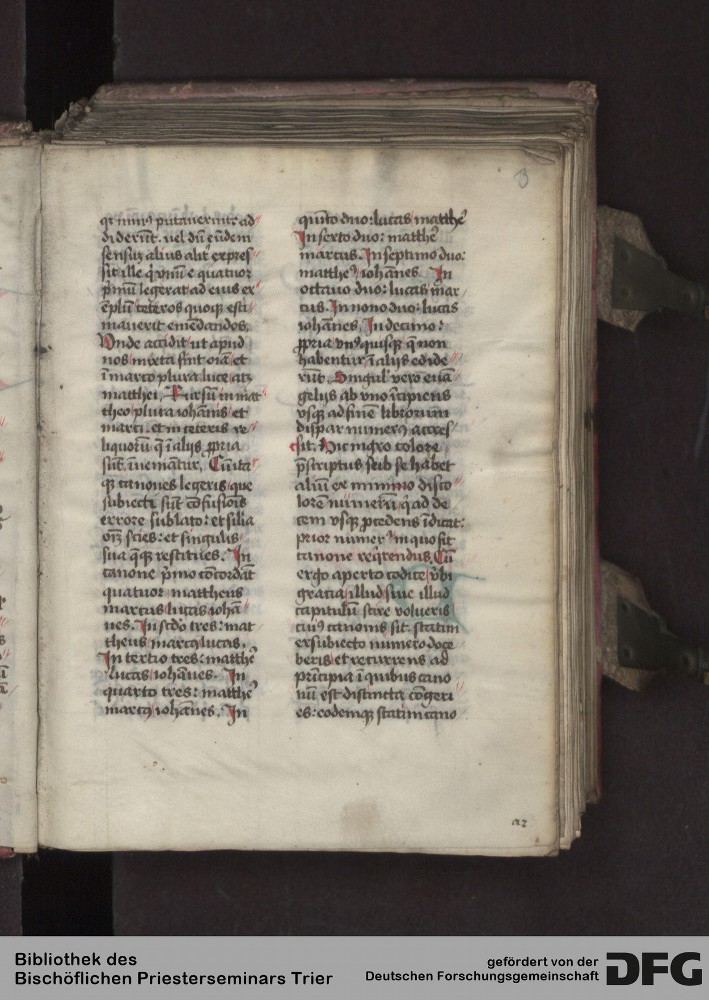 3
qd minus putaverunt ad
diderunt. vel dū eūdem
sensuȝ alius alit expres
sit ille q̇ vnū e quatuor
pͥmū legerat ad eius ex
ēplū ceteros quoqȝ esti
maverit emēdandos.
Vnde accidit ut apud
nos mixta sint oīa et
ī marco plura luce atqȝ
matthei. Rursū in mat
theo plura iohānis et
marci. et in ceteris re
liquorū q̄ ī alijs ꝓpria
sūt inueniātur. Cū ita
qȝ canones legeris que
subiecti sūt cōfusiōis
errore sublato: et silia
oīȝ scies: et singulis
sua q̄qȝ restitues. In
canone pͥmo cōcordāt
quatuor mattheus
marcus lucas iohā
nes. In scd̄o tres: mat
theus marcꝰ lucas.
In tertio tres: mattheꝰ
lucas iohānes. In
quarto tres: mattheꝰ
marcꝰ iohānes. In
quīto duo: lucas mattheꝰ
In sexto duo: mattheꝰ
marcus. In septimo duo:
mattheꝰ iohānes. In
octauo duo: lucas mar
cus. In nono duo: lucas
iohānes. In decimo:
ꝓpria vnꝰ quisqȝ q̄ non
habentur ī alijs edide
rūt. Singul' vero euā
gelijs ab vno īcipiens
vsqȝ ad finē librorum
dispar numerꝰ accres
cit. Hic nigro colore
p̄scriptus sub se habet
aliū ex minnio disco
lorē numerū q̇ ad de
cem vsqȝ ꝓcedens īdicat:
prior numerꝰ in quo sit
canone reqͥrendus. Cū
ergo aperto codice vͥbi
gratia illud siue illud
capitulū scire volueris
cuiꝰ canonis sit. statim
ex subiecto numero doce
beris et recurrens ad
prīcipia ī quibus cano
nū est distincta cōgeri
es: eodemqȝ statim cano
a2
Bibliothek des
Bischöflichen Priesterseminars Trier
gefördert von der
Deutschen Forschungsgemeinschaft
DFG